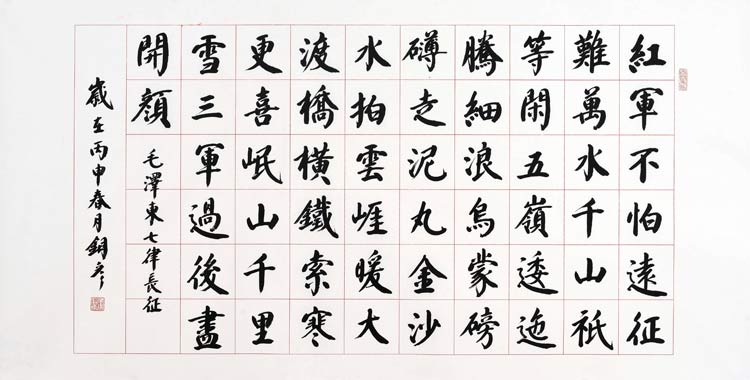 紅軍不怕遠征
難萬水千山祇
等閑五嶺逶迤
騰細浪烏蒙磅
礴走泥丸金沙
水拍雲崕暖大
渡橋橫鐵索寒
更喜岷山千里
雪三軍過後盡
開顏
毛澤東七律長征
歲在丙申春月